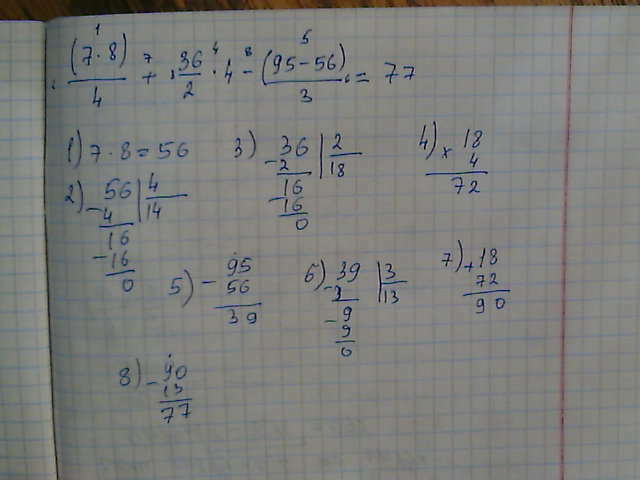 1 7 4 8 5
(7·8)/4 + 36/2 · 4 - (95-56)/3 = 77
1) 7·8=56
2) 56 | 4
-4 14
16
-16
0
3) 36 | 2
-2 18
16
-16
0
4) 18
× 4
72
5) - 95
56
39
6) 39 | 3
-3 13
9
-9
0
7) +18
72
90
8) - 90
13
77